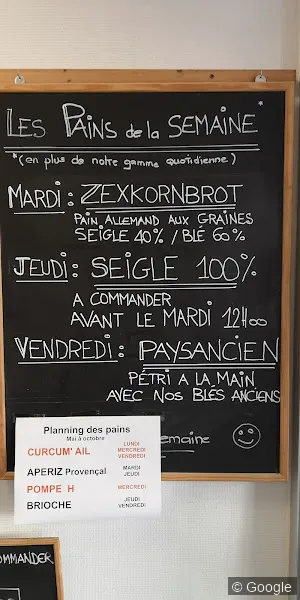 LES PAINS de la SEMAINE*
*(en plus de notre gamme quotidienne)
MARDI : ZEXKORNBROT
PAIN ALLEMAND AUX GRAINES
SEIGLE 40% / BLÉ 60%
JEUDI : SEIGLE 100%
A COMMANDER
AVANT LE MARDI 12H00
VENDREDI : PAYSANCIEN
PÉTRI A LA MAIN
AVEC NOS BLÉS ANCIENS
emaine
Planning des pains
Mai à octobre
CURCUM' AIL LUNDI
MERCREDI
VENDREDI
APERIZ Provençal MARDI
JEUDI
POMPE H MERCREDI
BRIOCHE JEUDI
VENDREDI
OMMANDER
© Google